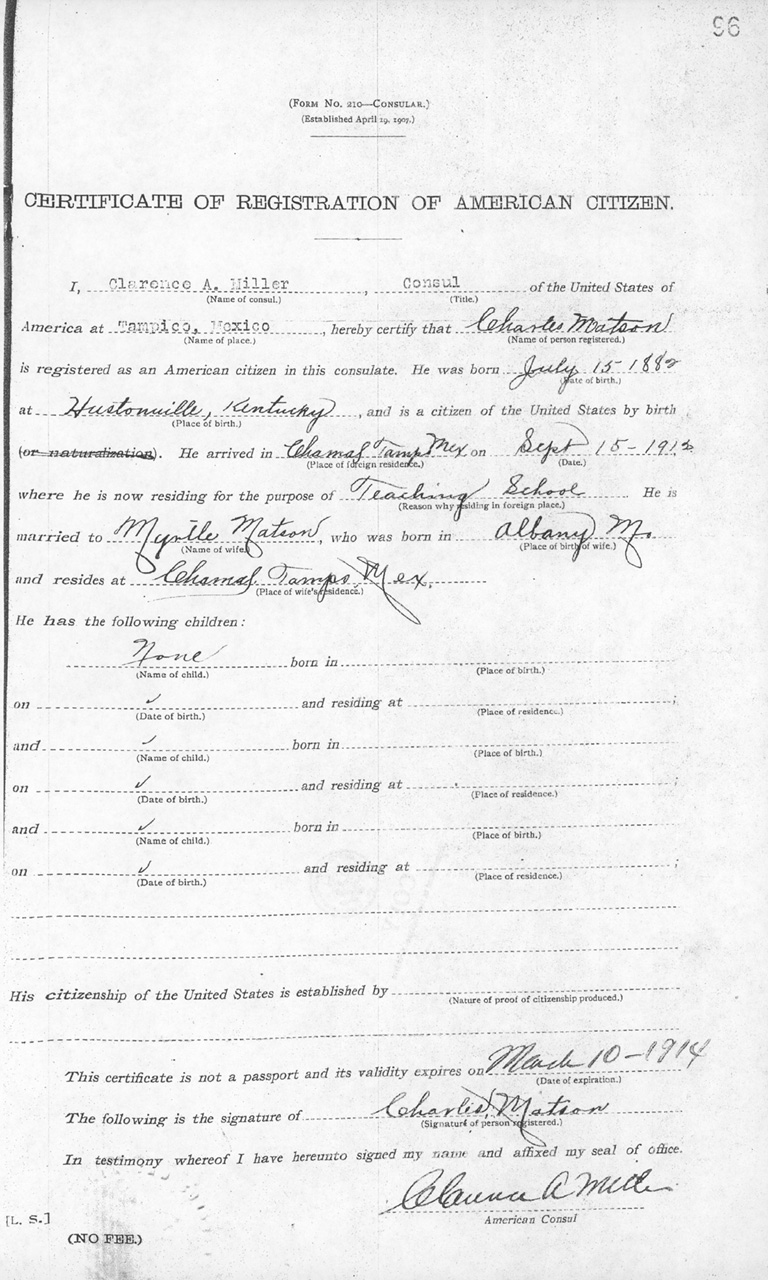 96
(FORM NO. 210—CONSULAR.)
(Established April 19, 1907.)
CERTIFICATE OF REGISTRATION OF AMERICAN CITIZEN.
I, Clarence A. Miller, Consul of the United States of
(Name of consul.) (Title.)
America at Tampico, Mexico, hereby certify that Charles Matson
(Name of place.) (Name of person registered.)
is registered as an American citizen in this consulate. He was born July 15 1882
(Date of birth.)
at Hustonville, Kentucky, and is a citizen of the United States by birth
(Place of birth.)
(or naturalization). He arrived in Chamal Tamps Mex on Sept 15-1912
(Place of foreign residence.) (Date.)
where he is now residing for the purpose of Teaching School He is
(Reason why residing in foreign place.)
married to Myrtle Matson, who was born in Albany Mo.
(Name of wife.) (Place of birth of wife.)
and resides at Chamal Tamps Mex.
(Place of wife's residence.)
He has the following children:
None born in
(Name of child.) (Place of birth.)
on ✓ and residing at ;
(Date of birth.) (Place of residence.)
and ✓ born in
(Name of child.) (Place of birth.)
on ✓ and residing at ;
(Date of birth.) (Place of residence.)
and ✓ born in
(Name of child.) (Place of birth.)
on ✓ and residing at ;
(Date of birth.) (Place of residence.)
His citizenship of the United States is established by
(Nature of proof of citizenship produced.)
This certificate is not a passport and its validity expires on March 10-1914
(Date of expiration.)
The following is the signature of Charles Matson
(Signature of person registered.)
In testimony whereof I have hereunto signed my name and affixed my seal of office.
Clarence A Miller
[L. S.] American Consul
(NO FEE.)